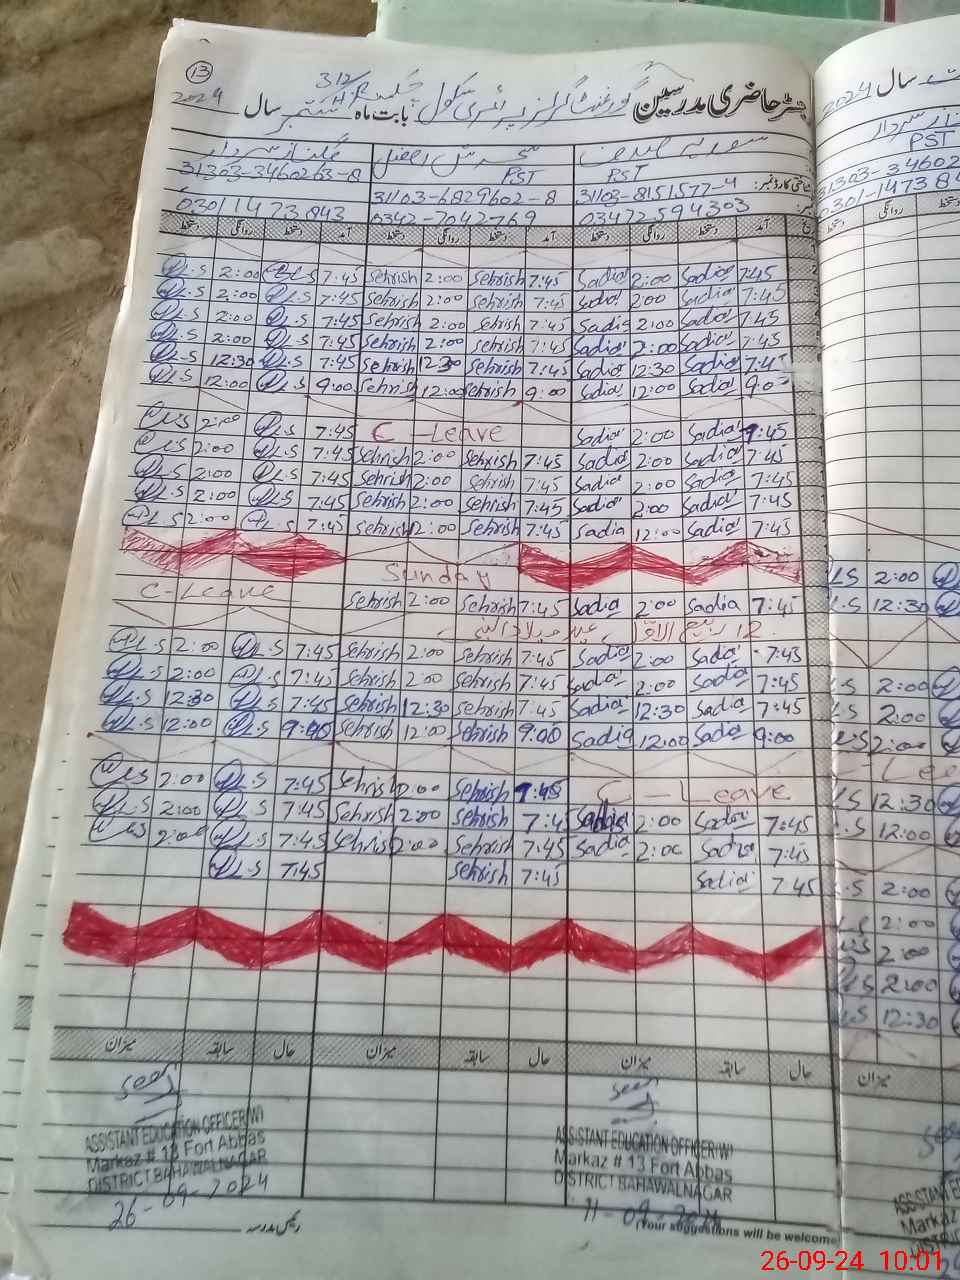 13
2024
312
رجسٹر حاضری مدرسین گورنمنٹ گرلز پرائمری سکول بابت ماہ ستمبر سال
PST PST
31303-3460263-8 31103-6829602-8 31103-8151577-4 شناختی کارڈ نمبر:
03011473843 0342-7042769 03472594303
دستخط روانگی دستخط آمد دستخط روانگی دستخط آمد دستخط روانگی دستخط آمد
L.S 2:00 L.S 7:45 Sehrish 2:00 Sehrish 7:45 Sadia 2:00 Sadia 7:45
L.S 2:00 L.S 7:45 Sehrish 2:00 Sehrish 7:45 Sadia 2:00 Sadia 7:45
L.S 2:00 L.S 7:45 Sehrish 2:00 Sehrish 7:45 Sadia 2:00 Sadia 7:45
L.S 2:00 L.S 7:45 Sehrish 2:00 Sehrish 7:45 Sadia 2:00 Sadia 7:45
L.S 12:30 L.S 7:45 Sehrish 12:30 Sehrish 7:45 Sadia 12:30 Sadia 7:45
L.S 12:00 L.S 9:00 Sehrish 12:00 Sehrish 9:00 Sadia 12:00 Sadia 9:0
L.S 2:00 L.S 7:45 C - Leave Sadia 2:00 Sadia 7:45
L.S 2:00 L.S 7:45 Sehrish 2:00 Sehrish 7:45 Sadia 2:00 Sadia 7:45
L.S 2:00 L.S 7:45 Sehrish 2:00 Sehrish 7:45 Sadia 2:00 Sadia 7:45
L.S 2:00 L.S 7:45 Sehrish 2:00 Sehrish 7:45 Sadia 2:00 Sadia 7:45
L.S 2:00 L.S 7:45 Sehrish 12:00 Sehrish 7:45 Sadia 12:00 Sadia 7:45
Sunday
C-Leave Sehrish 2:00 Sehrish 7:45 Sadia 2:00 Sadia 7:45
12 ربیع الاول عید میلاد النبی
L.S 2:00 L.S 7:45 Sehrish 2:00 Sehrish 7:45 Sadia 2:00 Sadia 7:45
L.S 2:00 L.S 7:45 Sehrish 2:00 Sehrish 7:45 Sadia 2:00 Sadia 7:45
L.S 12:30 L.S 7:45 Sehrish 12:30 Sehrish 7:45 Sadia 12:30 Sadia 7:45
L.S 12:00 L.S 9:00 Sehrish 12:00 Sehrish 9:00 Sadia 12:00 Sadia 9:00
L.S 2:00 L.S 7:45 Sehrish 2:00 Sehrish 7:45 C - Leave
L.S 2:00 L.S 7:45 Sehrish 2:00 Sehrish 7:45 Sadia 2:00 Sadia 7:45
L.S 2:00 L.S 7:45 Sehrish 2:00 Sehrish 7:45 Sadia 2:00 Sadia 7:45
L.S 7:45 Sehrish 7:45 Sadia 7:45
میزان سابقہ حال میزان سابقہ حال میزان سابقہ حال
Seen Seen
ASSISTANT EDUCATION OFFICER(W) ASSISTANT EDUCATION OFFICER(W)
Markaz # 13 Fort Abbas Markaz # 13 Fort Abbas
DISTRICT BAHAWALNAGAR DISTRICT BAHAWALNAGAR
26-09-2024 11-09-2024
رئیس مدرسہ Your suggestions will be welcome
2024 سال
PST
31303-34602
0301-14738
دستخط روانگی
L.S 2:00
L.S 12:30
L.S 2:00
L.S 2:00
L.S 2:00
C - Lea
L.S 12:30
L.S 12:00
L.S 2:00
L.S 2:00
L.S 2:00
L.S 2:00
L.S 12:30
میزان
26-09-24 10:01